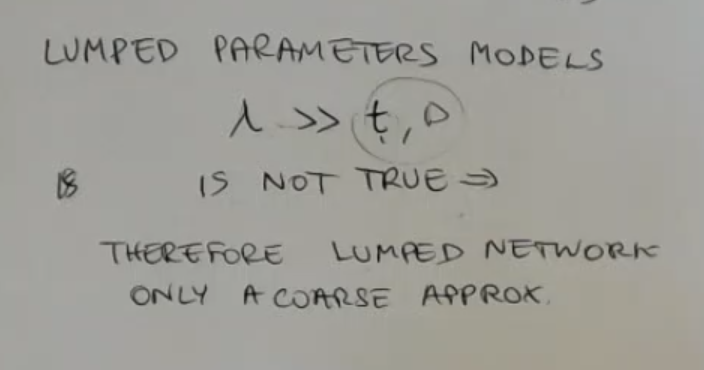 LUMPED PARAMETERS MODELS
λ >> t, D
IS NOT TRUE ⇒
THEREFORE LUMPED NETWORK
ONLY A COARSE APPROX.